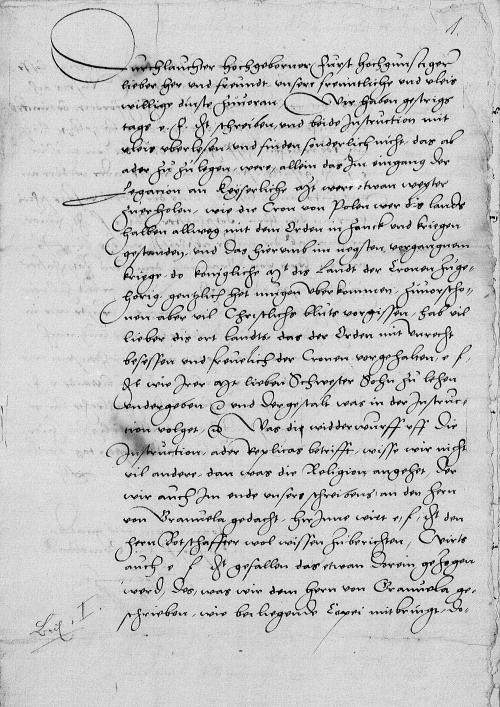 1.
Durchlauchter Hochgeborner Furst hochgunstiger
lieber her und freundt, unsere freuntliche und vleis
willige dinste zuvoran. Wir haben gestrigs
tags e. f. dt schreiben, und beide Instruction mit
vleis uberlesen, und finden sonderlich nicht, das ab
ader zu zulegen were, allein das im eingang der
Legacion an Keyserliche mt were etwan weyter
zuerholen, wie die Cron von Polen wer die lands
halben allweg mit dem Orden in zanck und kriegen
gestanden, und das hierumb im negsten vorgangnem
kriege, do konigliche mt dis Landt der Cronen zuge-
horig, gentzlich het mugen uberkommen, zuvorscho-
nen aber vil Christlichs bluts vorgissen, hab vil
lieber dis ort landts das der Orden mit unrecht
besessen und frevelich der Cronen vorgehalten, e. f.
dt wie Irer mt lieben Schwester Sohn zu lehen
undergeben und dergestalt was in der Instruc-
tion volget, Was die widderwurff uff die
Instruction, ader Replicas betrifft, wisse wir nicht
vil andere, dan was die Religion angehet, der
wir auch Im ende unsers schreibens an den hern
von Granvela gedacht, hyrinne wirt e. f. dt den
hern Botschaffter wol wissen zuberichten, Wirts
auch e. f. dt gefallen das etwan dorein gezogen
werd, des, was wir dem hern von Granvela ge-
schrieben, wie bei liegende Copei mitbringt, do-